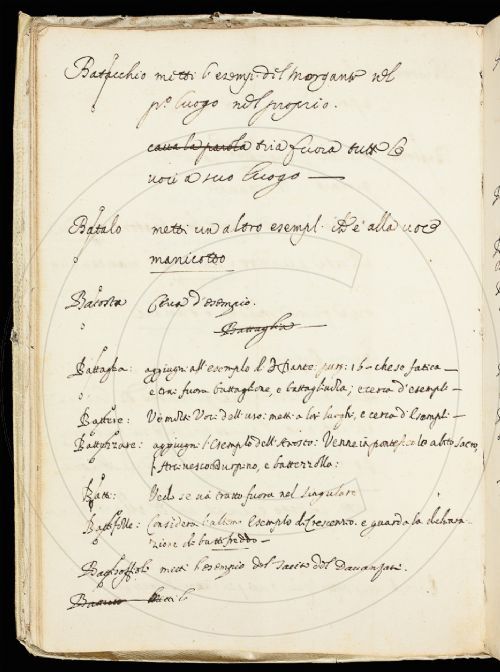 Batacchio metti l'esempi del Morgante nel
p.o luogo nel proprio.
cava la parola tria fuora tutte le
voci a suo luogo —
Batalo metti un altro esempl. ch'è alla voce
manicotto
Batosta Cerca d'esempio.
Battaglia
Battaglia: aggiugni all'esempio di Dante: purg: 16 che so fatica —
e trai fuora battaglione, e battagliuola; e cerca d'esempli —
Battere: V'è molte Voci dell'uso: metti a lor luoghi, e cerca d'Esempli —
Battezzare: aggiugni l'Esempio dell'Ariosto: Venne in pontificale abito sacro,
l'Arcivescovo Turpino, e battezzolla:
Batti: Vedi se va tratto fuora nel singulare
Battifolle: Considera l'ultimo Esempio di Crescenzio. e guarda la dichiara-
zione di battifreddo —
Battisoffiola metti l'esempio del Tacito del Davanzati.
Battuto metti l'